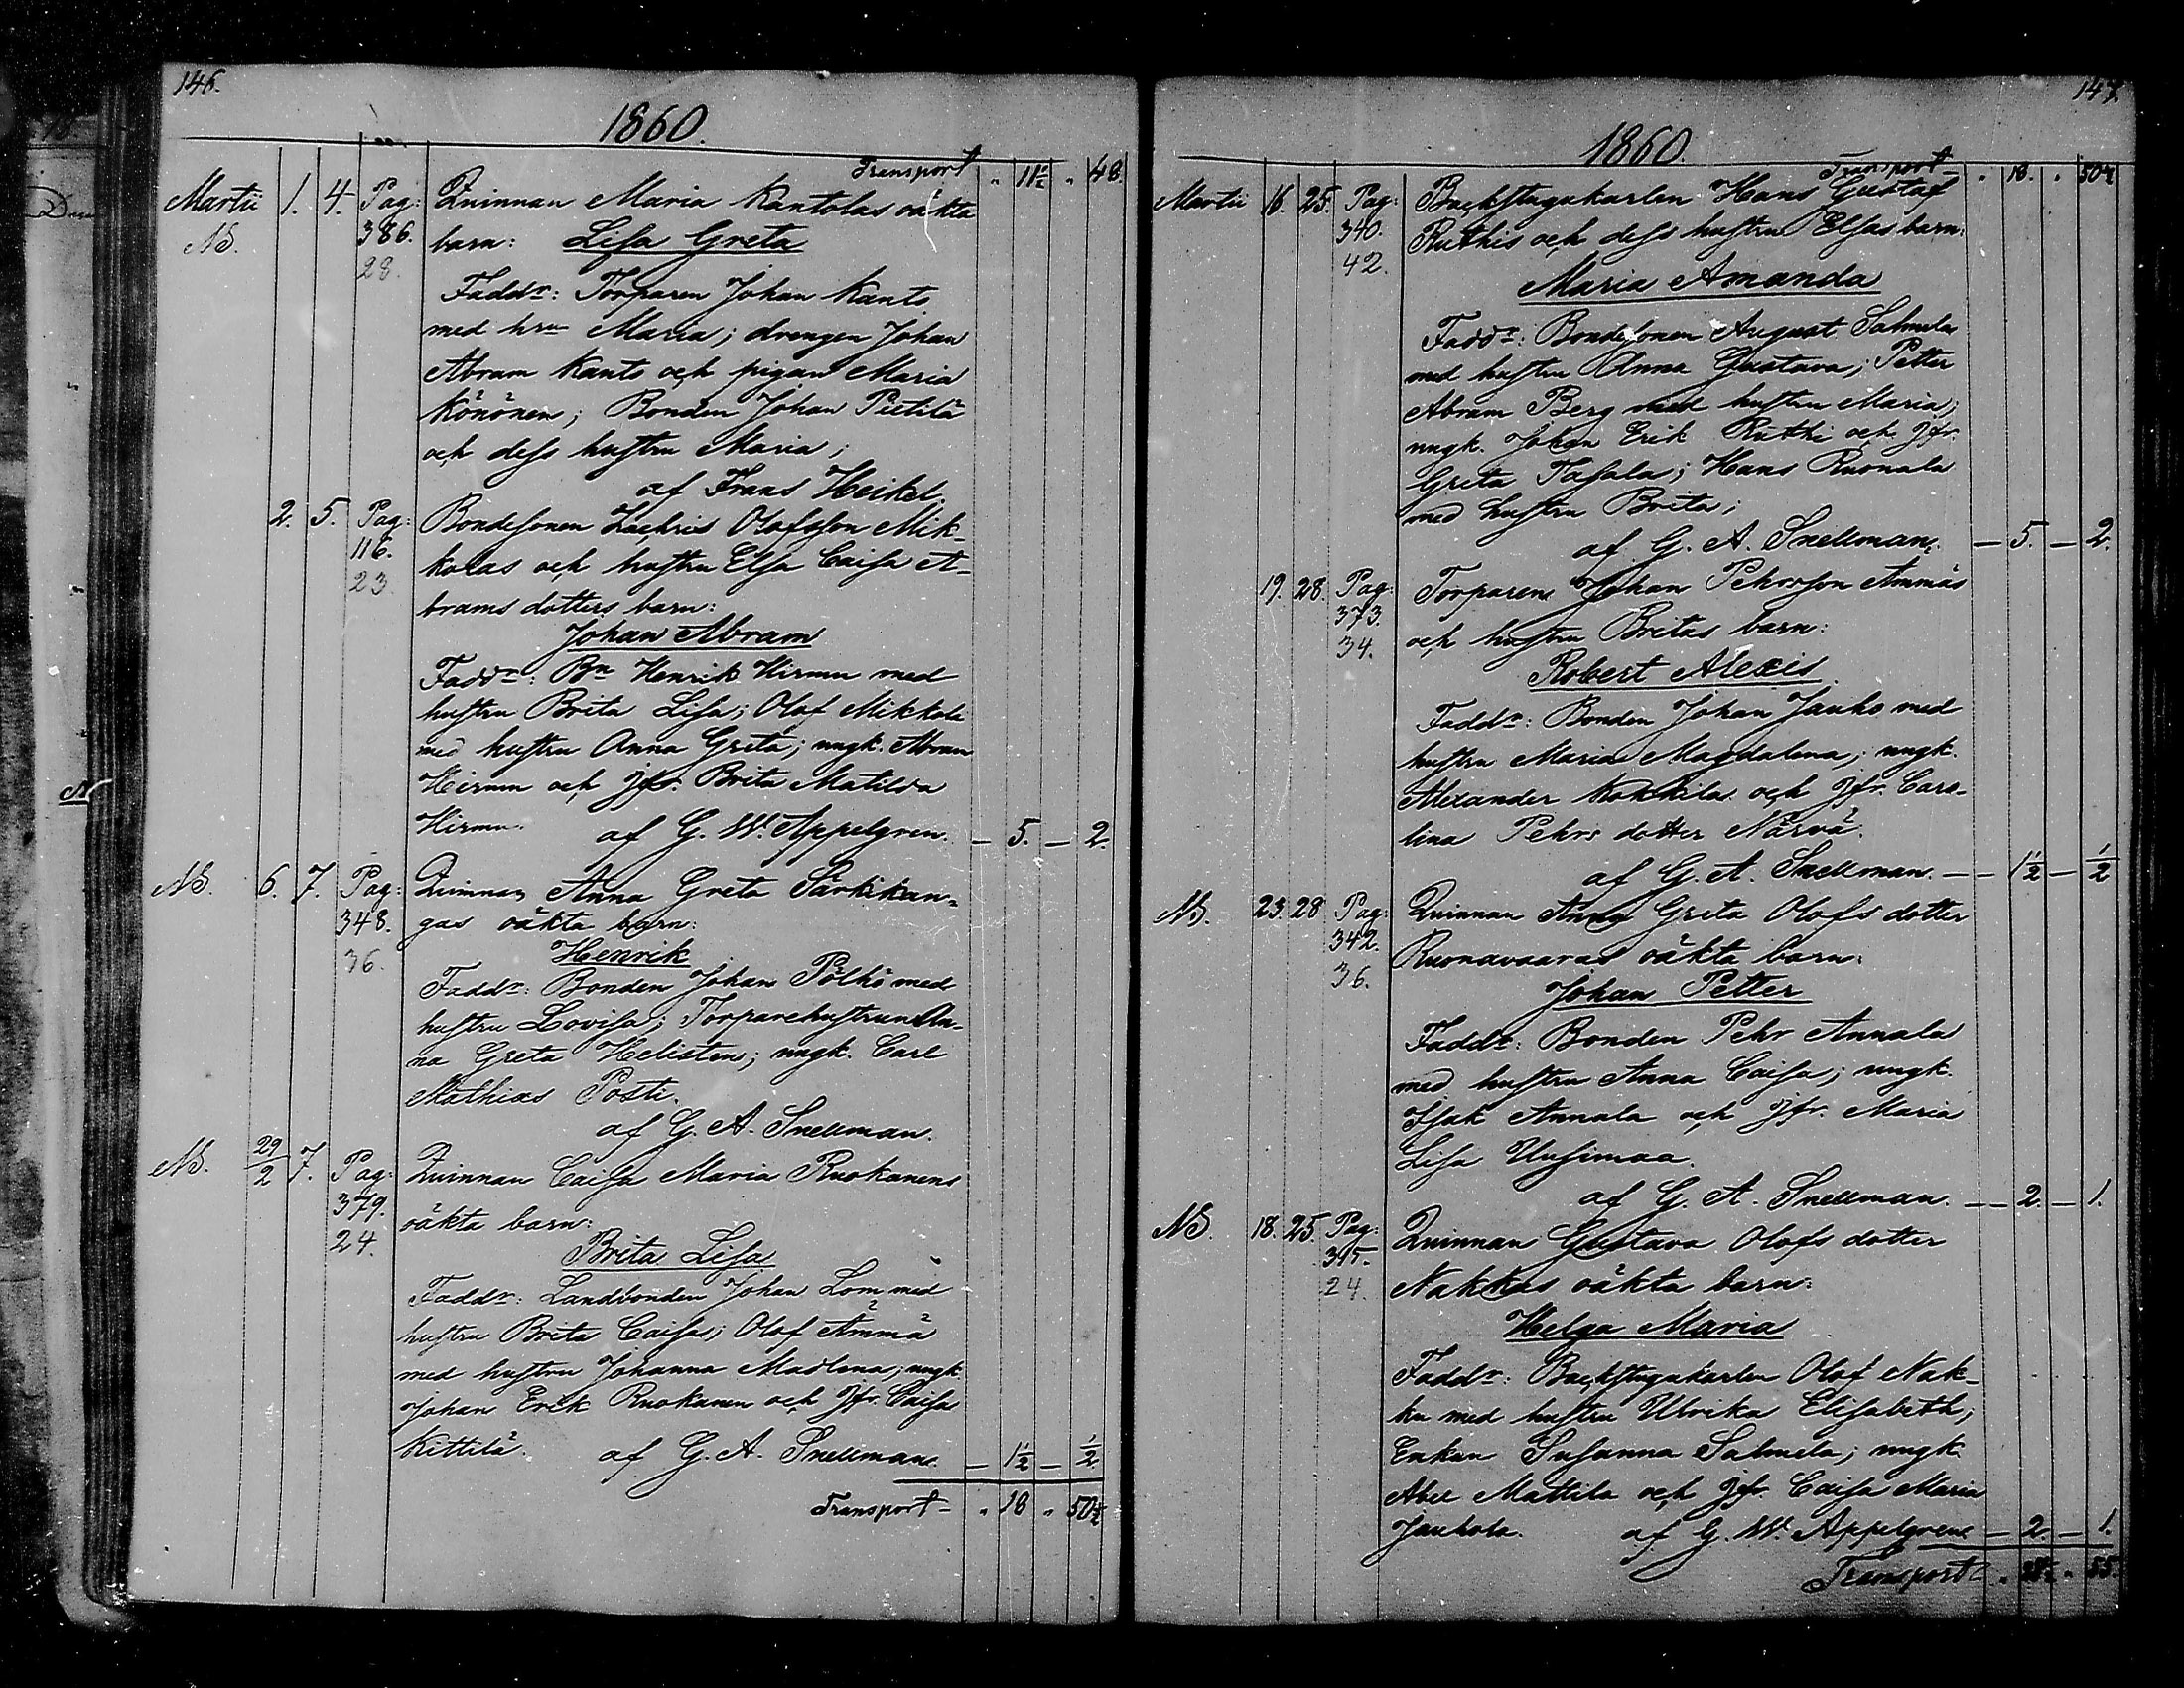 146.
1860.
Transport " 11½ " 48.
Martii 1. 4. Pag: Quinnan Maria Kantolas oäkta
NB. 386. barn: Lisa Greta
28.
Faddr: Torparen Johan Kanto
med hru Maria; drengen Johan
Abram Kanto och pigan Maria
Könönen; Bonden Johan Pietilä
och dess hustru Maria;
af Frans Heikel.
2. 5. Pag: Bondesonen Zachris Olofsson Mik-
116. kolas och hustru Elsa Caisa A-
23. brams dotters barn:
Johan Abram
Faddr: Bn Henrik Hirmu med
hustru Brita Lisa; Olof Mikkola
med hustru Anna Greta; ungk. Abram
Hirmu och Jfr. Brita Matilda
Hirmu. af G. W. Appelgren. — 5. — 2.
NB. 6. 7. Pag: Quinnan Anna Greta Särkikan-
348. gas oäkta barn:
36. Henrik
Faddr: Bonden Johan Pölhö med
hustru Lovisa; Torparehustrun An-
na Greta Helisten; ungk. Carl
Mathias Posti.
af G. A. Snellman.
NB. 29/2 7. Pag: Quinnan Caisa Maria Ruokanens
379. oäkta barn:
24. Brita Lisa
Faddr: Landbonden Johan Lom med
hustru Brita Caisa; Olof Ämmä
med hustru Johanna Madlena; ungk.
Johan Erik Ruokanen och Jfr. Caisa
Kittilä. af G. A. Snellman. — 1½ — ½
Transport — " 18 " 50½
147.
1860.
Transport — " 18. " 50½
Martii 16. 25. Pag: Backstugukarlen Hans Gustaf
340. Ruthis och dess hustru Elsas barn:
42. Maria Amanda
Faddr: Bondesonen August Salmela
med hustru Anna Gustava; Petter
Abram Berg med hustru Maria;
ungk. Johan Erik Ruthi och Jfr.
Greta Tasala; Hans Ruonala
med hustru Brita;
af G. A. Snellman. — 5. — 2.
19. 28. Pag: Torparen Johan Pehrsson Ämmäs
373. och hustru Britas barn:
34. Robert Alexis
Faddr: Bonden Johan Jauho med
hustru Maria Magdalena; ungk.
Alexander Kokkila och Jfr. Caro-
lina Pehrs dotter Närvä.
af G. A. Snellman. — 1½ — ½
NB. 23. 28 Pag: Quinnan Anna Greta Olofs dotter
342. Ruonavaaras oäkta barn:
36. Johan Petter
Faddr: Bonden Pehr Annala
med hustru Anna Caisa; ungk.
Isak Annala och Jfr. Maria
Lisa Uusimaa.
af G. A. Snellman. — 2. — 1.
NB. 18. 25. Pag: Quinnan Gustava Olofs dotter
395. Nakkus oäkta barn:
24. Helga Maria
Faddr: Backstugukarlen Olof Nak-
ku med hustru Ulrika Elisabeth;
Enkan Susanna Salmela; ungk.
Abel Mattila och Jfr. Caisa Maria
Jauhola. af G. W. Appelgren — 2. — 1.
Transport — " 28½ " 55.